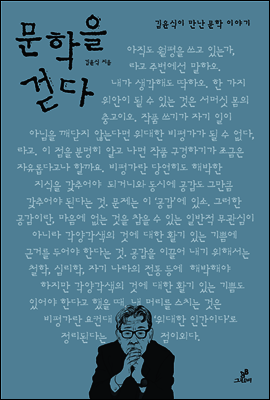 김윤식이 만난 문학 이야기
문학을
걷다
김윤식 지음
아직도 월평을 쓰고 있는가,
라고 주변에선 말하오.
내가 생각해도 딱하오. 한 가지
위안이 될 수 있는 것은 서머싯 몸의
충고이오. 작품 쓰기가 자기 일이
아님을 깨닫지 않는다면 위대한 비평가가 될 수 없다,
라고. 이 점을 분명히 알고 나면 작품 구경하기가 조금은
자유롭다고나 할까요. 비평가란 당연히도 해박한
지식을 갖추어야 되거니와 동시에 공감도 그만큼
갖추어야 된다는 것. 문제는 이 '공감'에 있소. 그러한
공감이란, 마음에 없는 것을 참을 수 있는 일반적 무관심이
아니라 각양각색의 것에 대한 활기 있는 기쁨에
근거를 두어야 한다는 것. 공감을 이끌어 내기 위해서는
철학, 심리학, 자기 나라의 전통 등에 해박해야
하지만 각양각색의 것에 대한 활기 있는 기쁨도
있어야 한다고 했을 때, 내 머리를 스치는 것은
비평가란 요컨대 '위대한 인간이다'로
정리된다는 점이외다.
그린비